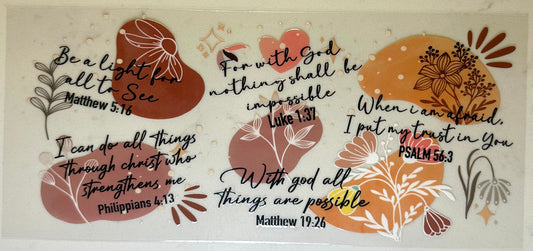 Be a light for
all to See
Matthew 5:16
For with God
nothing shall be
impossible
Luke 1:37
When i am afraid,
I put my trust in You
PSALM 56:3
I can do all things
through christ who
strengthens me
Philippians 4:13
With god all
things are possible
Matthew 19:26